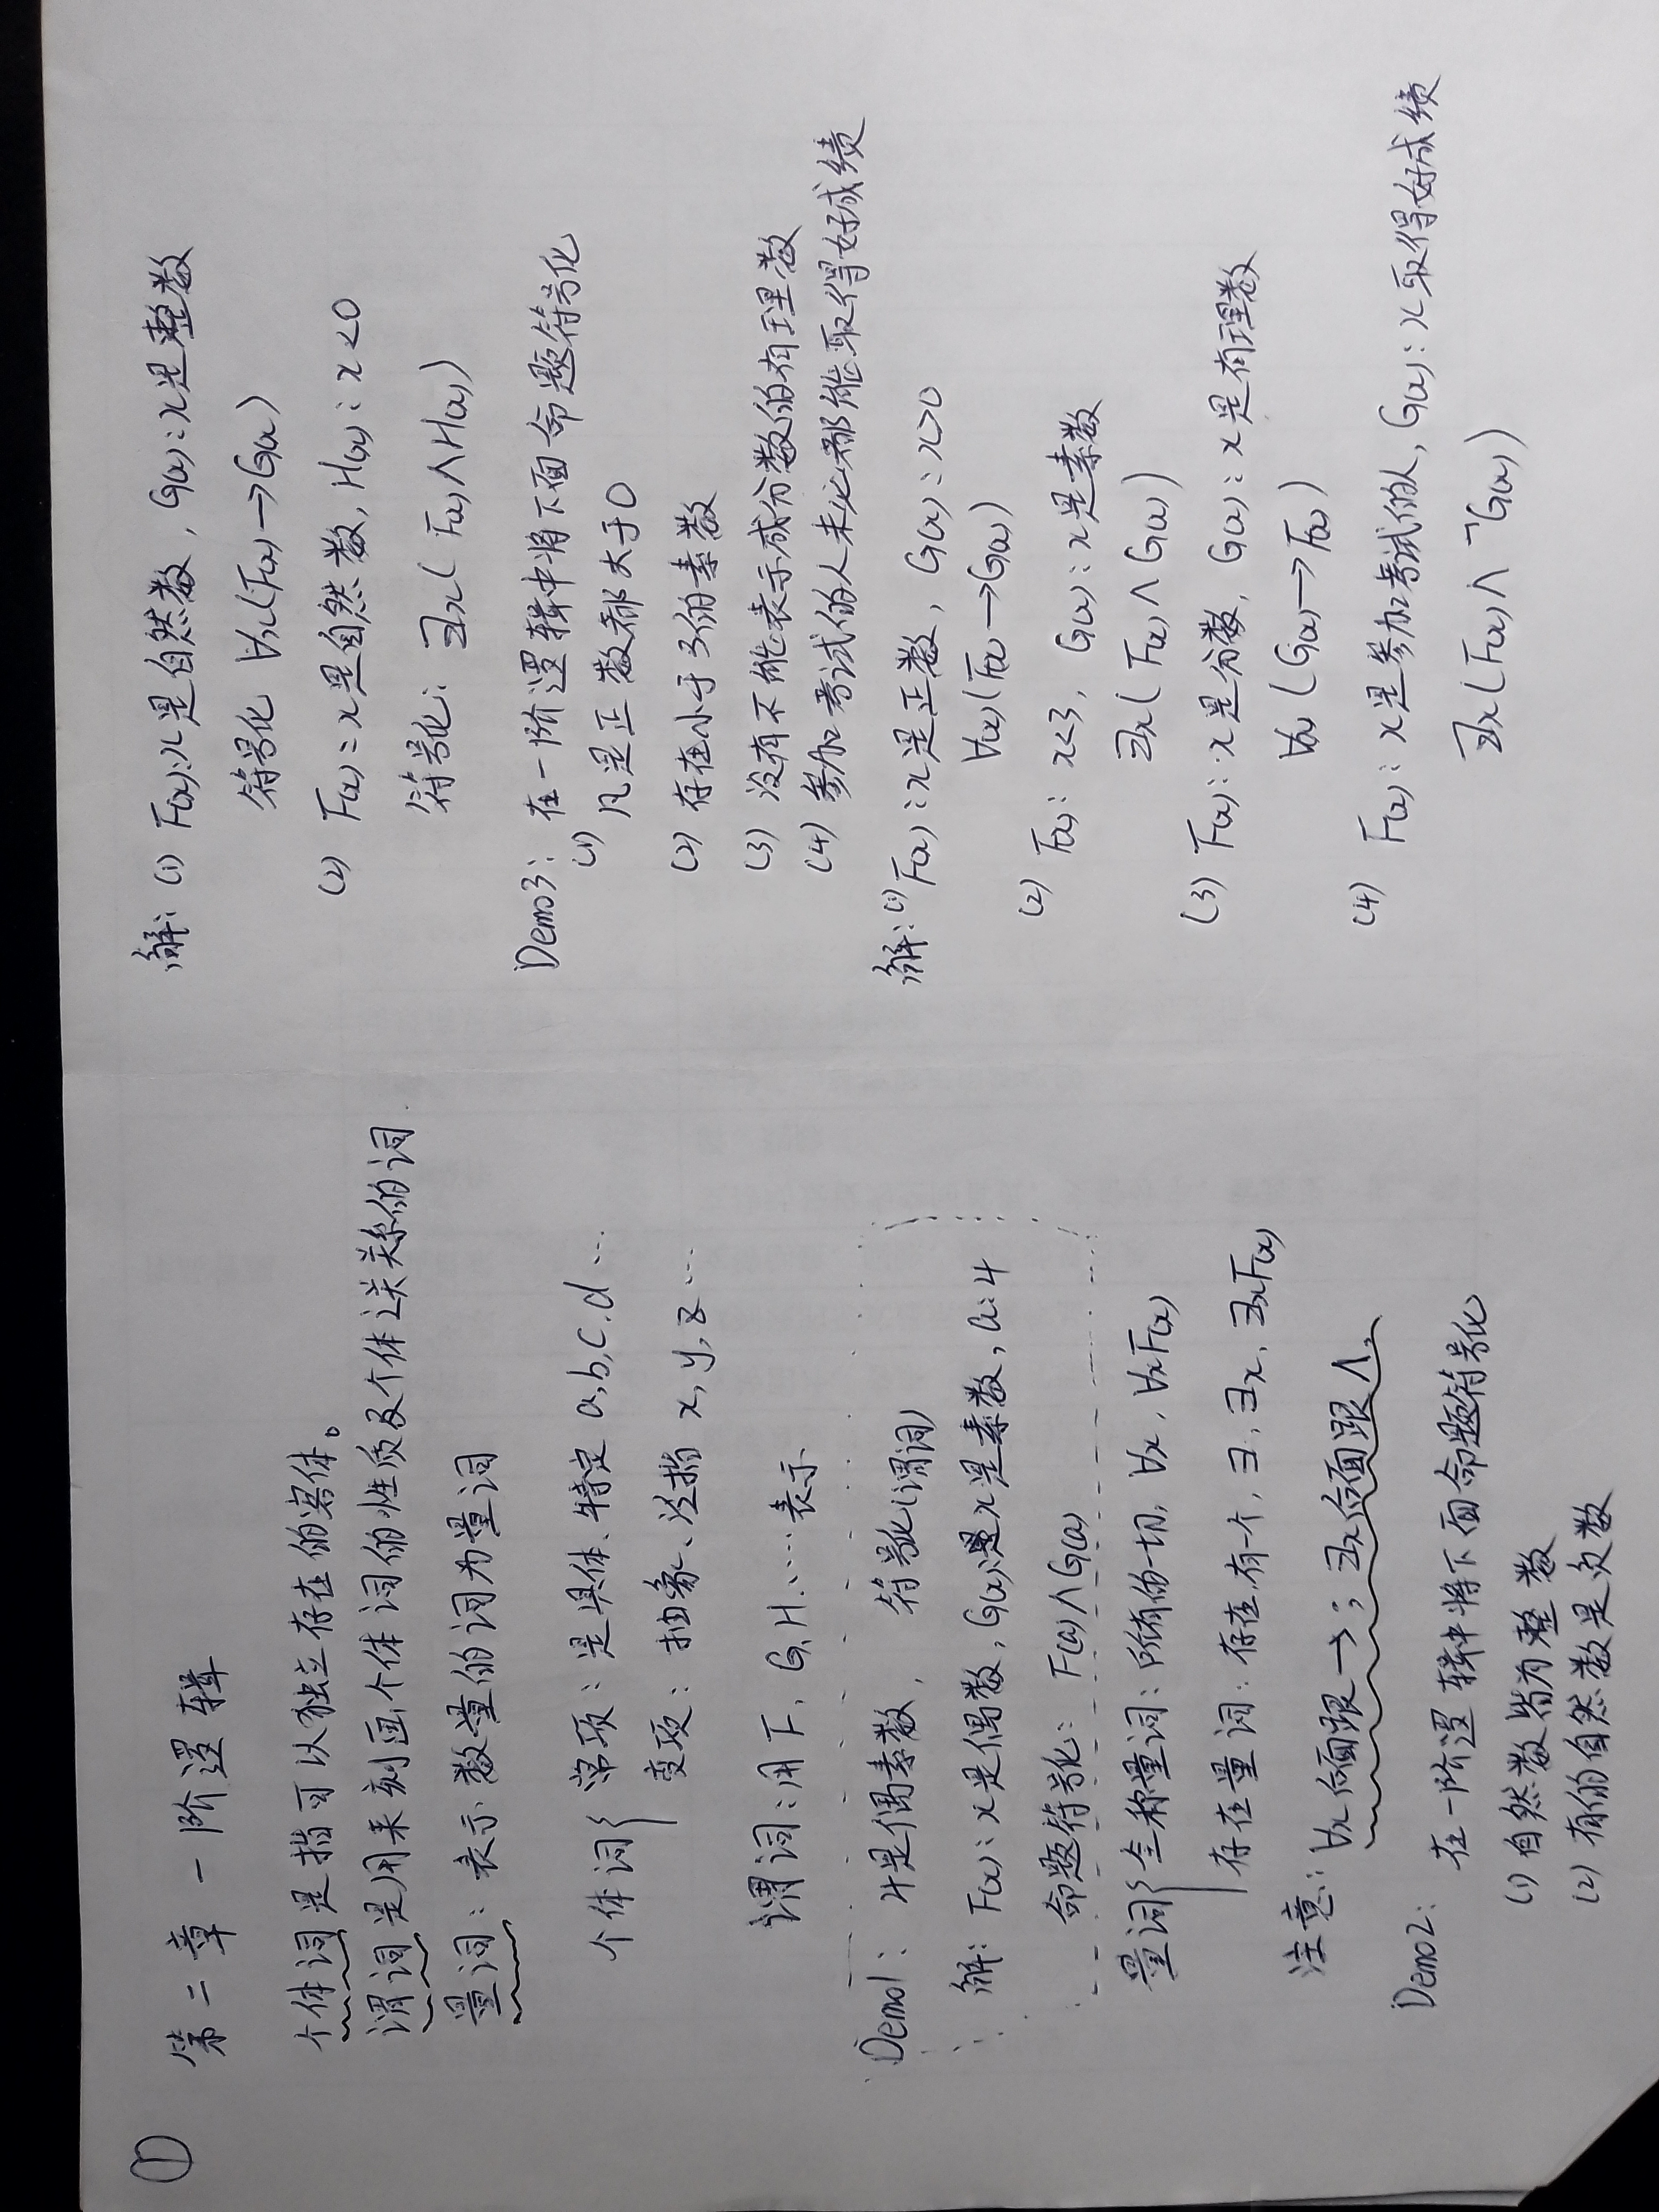 ①
第二章 一阶逻辑
个体词是指可以独立存在的客体。
谓词是用来刻画个体词的性质及个体之间关系的词.
量词：表示数量的词为量词
个体词{ 常项：是具体、特定 a,b,c,d…
变项：抽象、泛指 x,y,z…
谓词：用F, G, H……表示
Demo1： 4是偶素数, 符号化(谓词)
解: F(x)：x是偶数, G(x)：x是素数, a:4
命题符号化： F(a)∧G(a)
量词{ 全称量词：所有的一切, ∀x, ∀xF(x)
存在量词：存在,有一个, ∃, ∃x, ∃xF(x)
注意： ∀x后面跟→；∃x后面跟∧。
Demo2：
在一阶逻辑中将下面命题符号化
(1) 自然数皆为整数
(2) 有的自然数是负数
解：(1) F(x):x是自然数, G(x)：x是整数
符号化 ∀x(F(x)→G(x))
(2) F(x)：x是自然数, H(x)：x<0
符号化： ∃x(F(x)∧H(x))
Demo3： 在一阶逻辑中将下面命题符号化
(1) 凡是正数都大于0
(2) 存在小于3的素数
(3) 没有不能表示成分数的有理数
(4) 参加考试的人未必都能取得好成绩
解：(1) F(x)：x是正数, G(x)：x>0
∀(x)(F(x)→G(x))
(2) F(x)：x<3, G(x)：x是素数
∃x(F(x)∧G(x))
(3) F(x)：x是分数, G(x)：x是有理数
∀x(G(x)→F(x))
(4) F(x)：x是参加考试的人, G(x)：x取得好成绩
∃x(F(x)∧¬G(x))